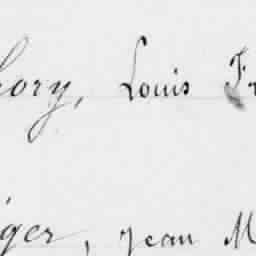 ory, Louis Fr
iger, Jean M